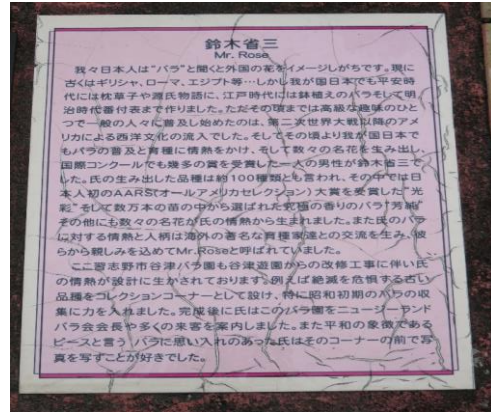 鈴木省三
Mr. Rose
我々日本人は"バラ"と聞くと外国の花をイメージしがちです。現に
古くはギリシャ、ローマ、エジプト等…しかし我が国日本でも平安時
代には枕草子や源氏物語に、江戸時代には鉢植えのバラそして明
治時代番付表まで作りました。ただその頃までは高級な趣味のひと
つで一般の人々に普及し始めたのは、第二次世界大戦以降のアメ
リカによる西洋文化の流入でした。そしてその頃より我が国日本で
もバラの普及と育種に情熱をかけ、そして数々の名花を生み出し、
国際コンクールでも幾多の賞を受賞した一人の男性が鈴木省三で
した。氏の生み出した品種は約100種類とも言われ、その中では日
本人初のAARS(オールアメリカセレクション)大賞を受賞した"光
彩"そして数万本の苗の中から選ばれた究極の香りのバラ"芳純"
その他にも数々の名花が氏の情熱から生まれました。また氏のバラ
に対する情熱と人柄は海外の著名な育種家達との交流を生み、彼
らから親しみを込めてMr.Roseと呼ばれていました。
ここ習志野市谷津バラ園も谷津遊園からの改修工事に伴い氏
の情熱が設計に生かされております。例えば絶滅を危惧する古い
品種をコレクションコーナーとして設け、特に昭和初期のバラの収
集に力を入れました。完成後に氏はこのバラ園をニュージーランド
バラ会会長や多くの来客を案内しました。また平和の象徴である
ピースと言う バラに思い入れのあった氏はそのコーナーの前で写
真を写すことが好きでした。